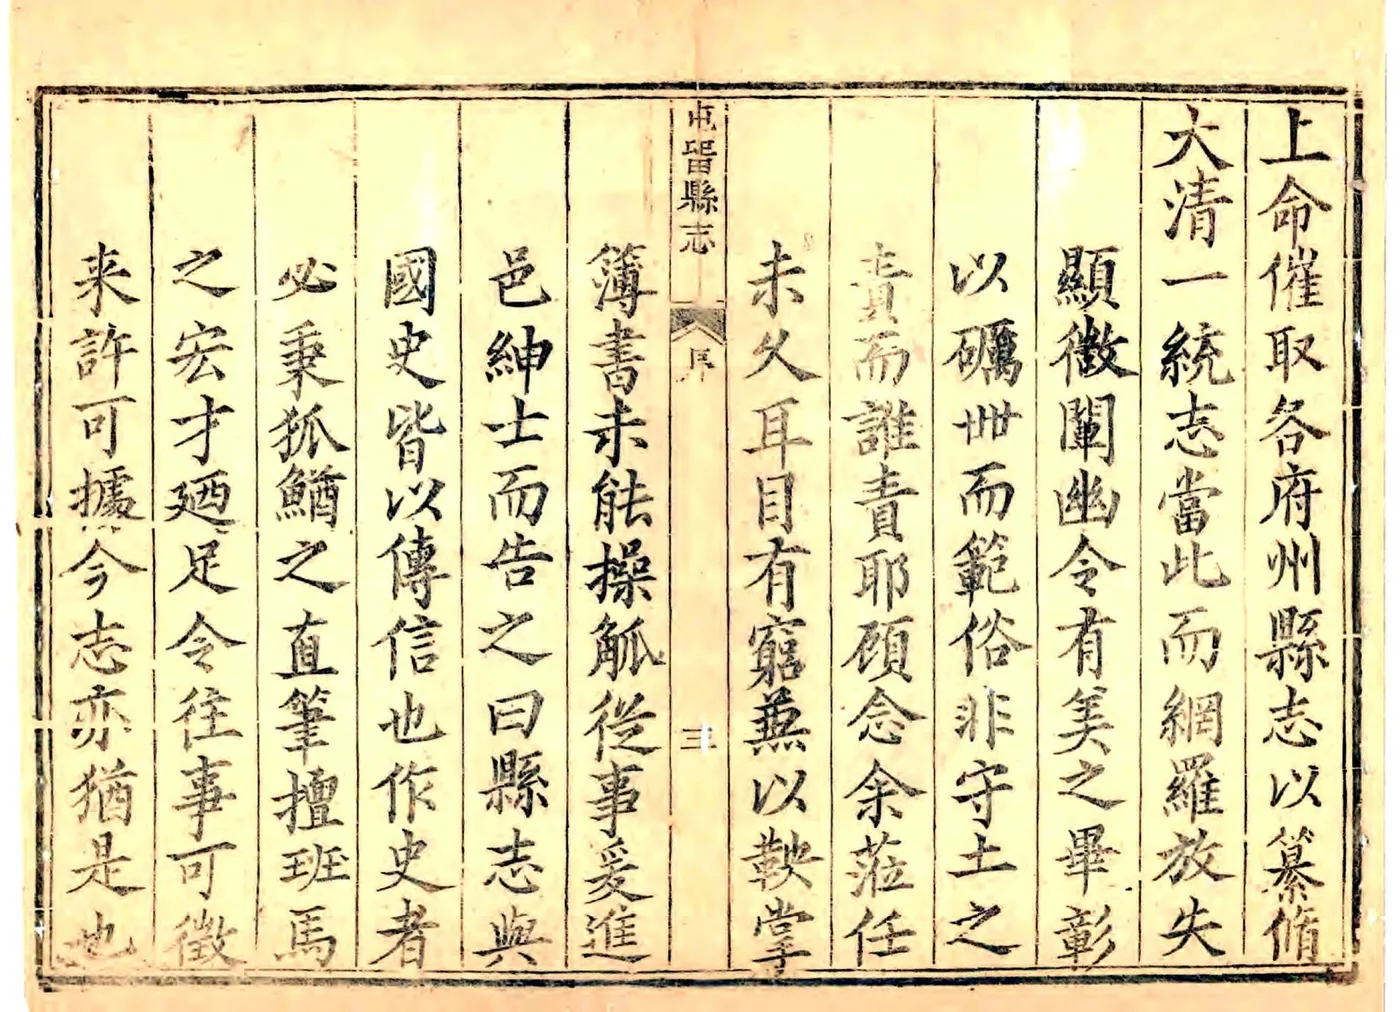 上命催取各府州縣志以纂脩
大清一統志當此而網羅放失
顯微闡幽令有美之畢彰
以礪世而範俗非守土之
責而誰責耶顧念余蒞任
未久耳目有窮兼以鞅掌
屯留縣志
序
三
簿書未能操觚從事爰進
邑紳士而告之曰縣志與
國史皆以傳信也作史者
必秉狐鰌之直筆擅班馬
之宏才廼足令往事可徵
来許可據今志亦猶是也